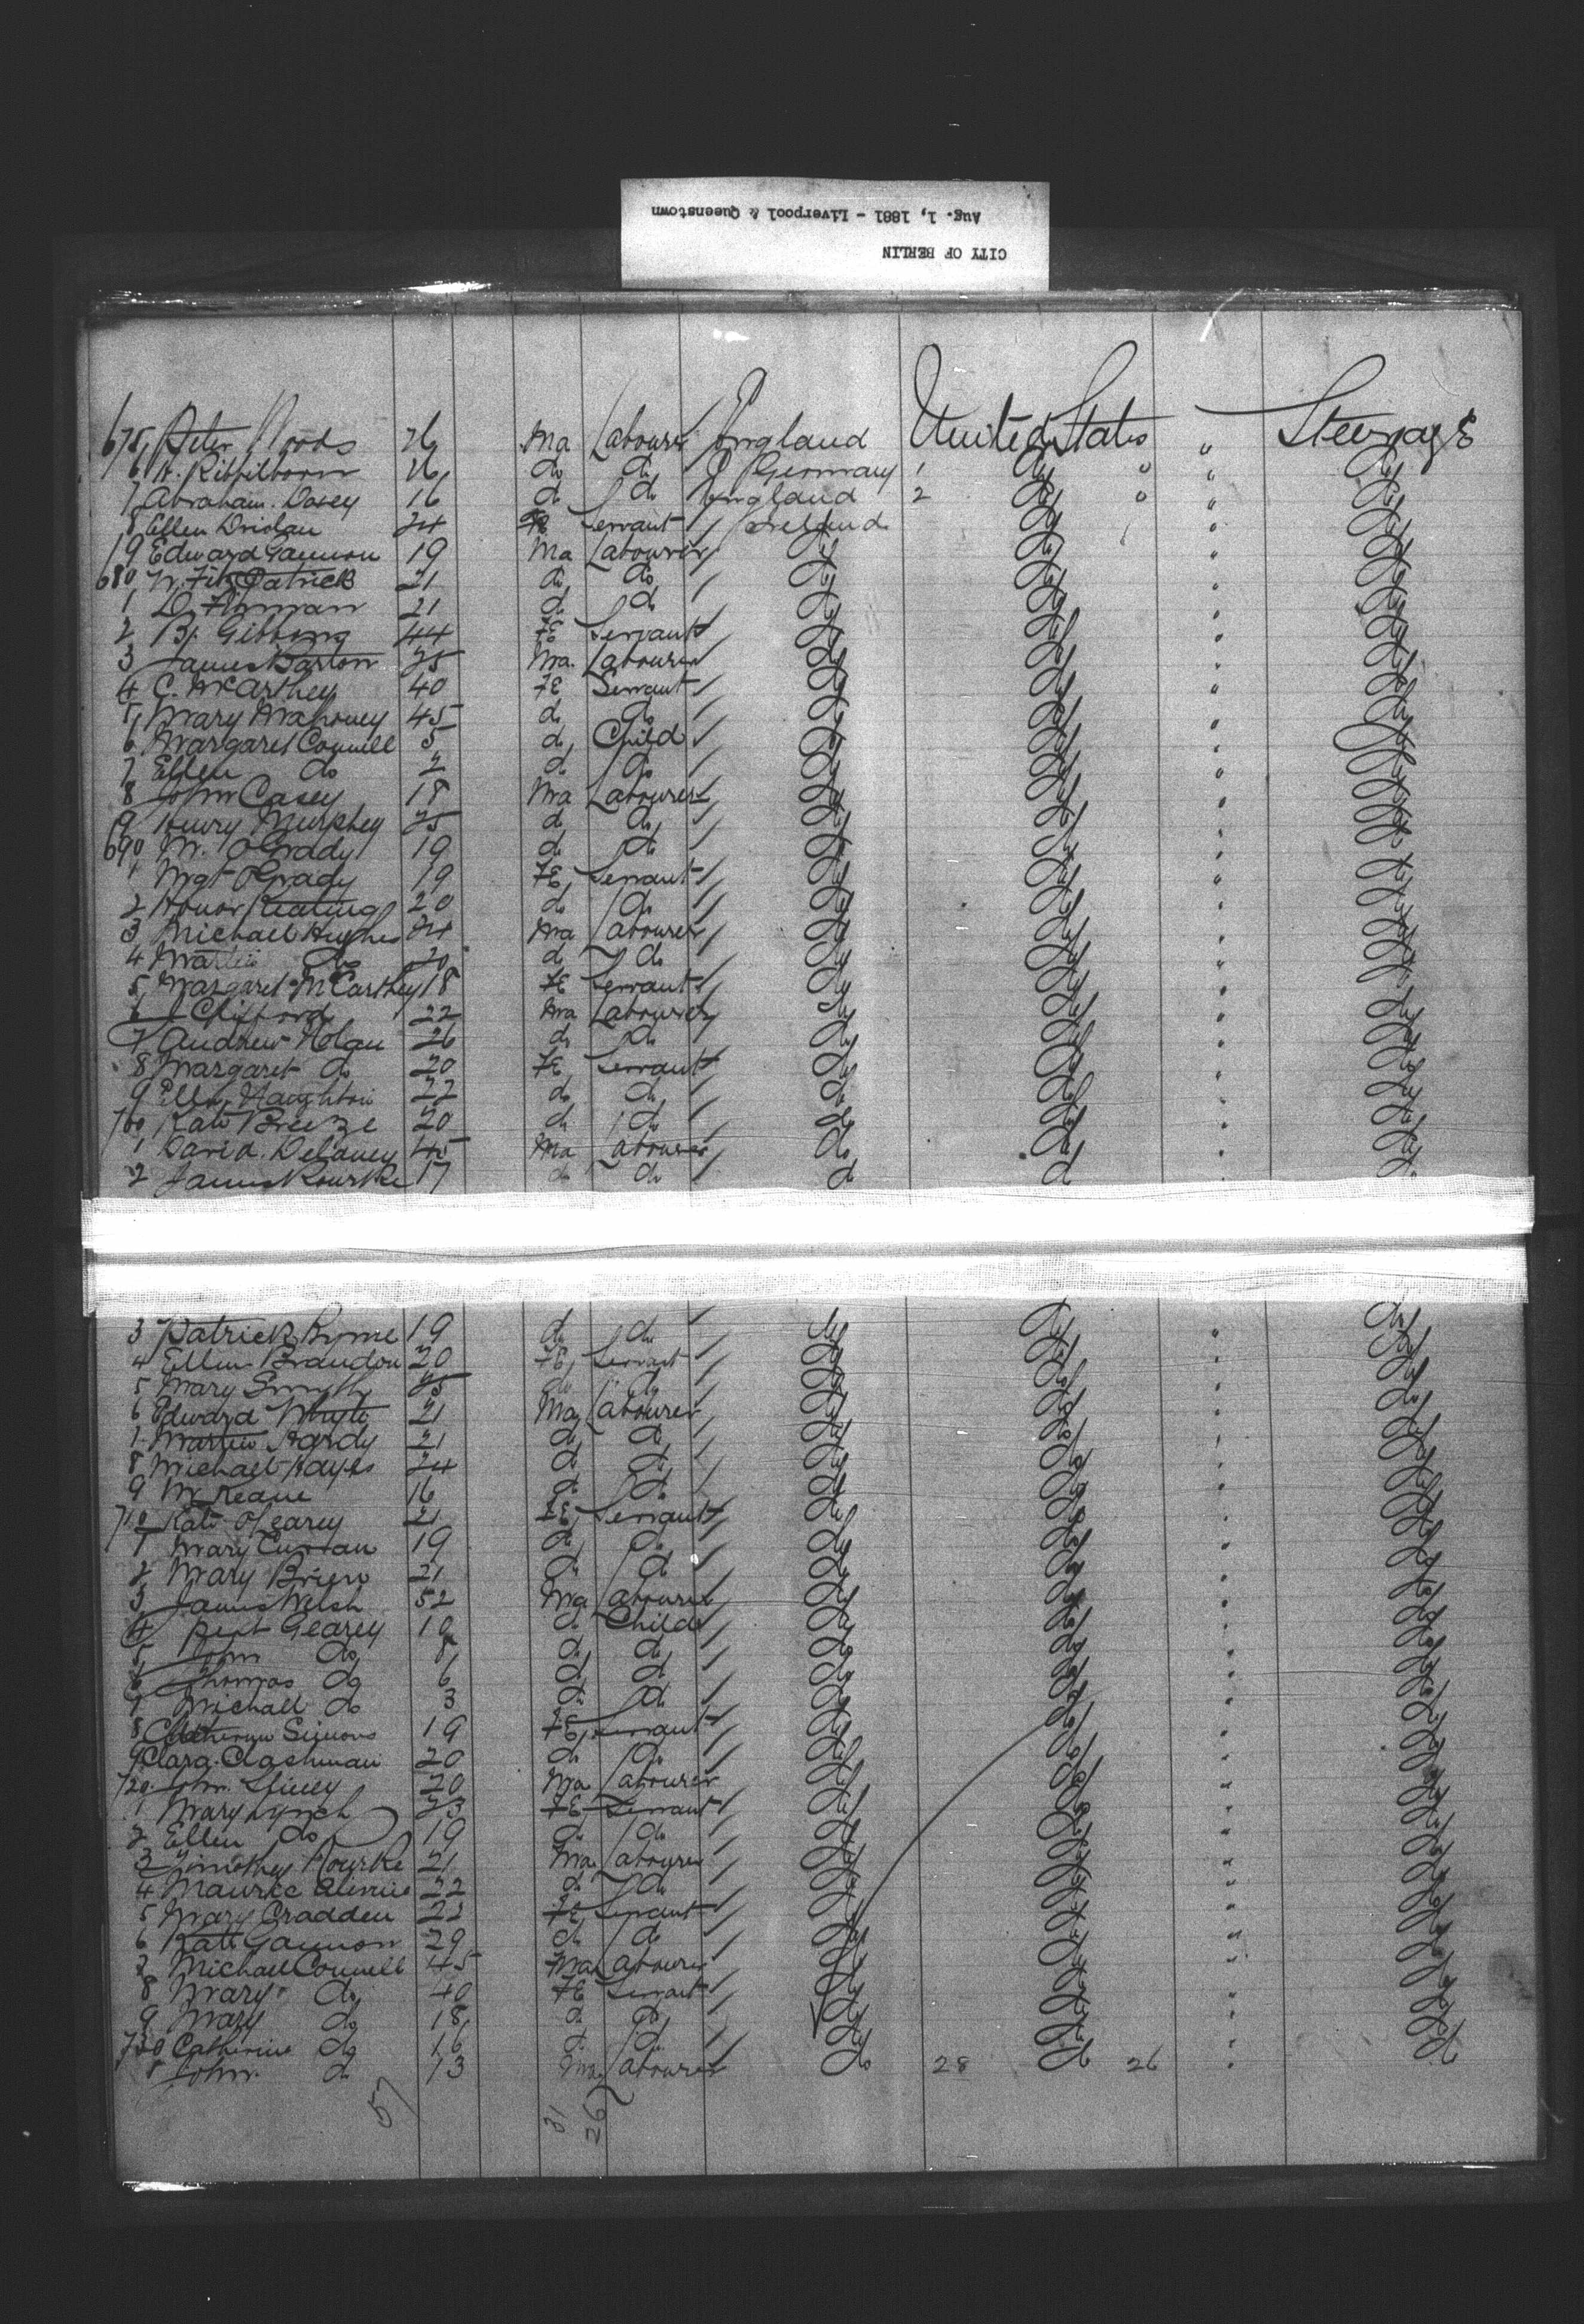 CITY OF BERLIN
Aug. 1, 1881 - Liverpool & Queenstown
675 Peter Woods 26 Ma Labourer England United States " Steerage
6 H. 26 do do Germany 1 do " " do
7 Abraham Dovey 16 do do England 2 do " " do
8 Ellen Driolan 24 Fe Servant Ireland do " do
9 Edward Gannon 19 Ma Labourer do do " do
680 W. FitzPatrick 21 do do do do " do
1 D. 21 do do do do " do
2 By. Gibbons 44 Fe Servant do do " do
3 James Barton 25 Ma Labourer do do " do
4 C. McCarthey 40 Fe Servant do do " do
5 Mary Mahoney 45 do do do do " do
6 Margaret Connell 5 do Child do do " do
7 Ellen do 2 do do do do " do
8 John Casey 18 Ma Labourer do do " do
9 Henry Murphey 25 do do do do " do
690 M. O'Grady 19 do do do do " do
1 Mgt O'Grady 19 Fe Servant do do " do
2 Honor Keating 20 do do do do " do
3 Michael Hughes 24 Ma Labourer do do " do
4 Martin do 20 do do do do " do
5 Margaret McCarthey 18 Fe Servant do do " do
6 J Clifford 22 Ma Labourer do do " do
7 Andrew Nolan 26 do do do do " do
8 Margaret do 20 Fe Servant do do " do
9 Ellen Naughton 22 do do do do " do
700 Kate Breeze 20 do do do do " do
1 David Delaney 45 Ma Labourer do do " do
2 James Rourke 17 do do do do " do
3 Patrick Byrne 19 do do do do " do
4 Ellen Brandon 20 Fe Servant do do " do
5 Mary Smyth 25 do do do do " do
6 Edward Whyte 21 Ma Labourer do do " do
7 Martin Hardy 21 do do do do " do
8 Michael Hayes 24 do do do do " do
9 M Keane 16 do do do do " do
710 Kate O'Learey 21 Fe Servant do do " do
1 Mary Curran 19 do do do do " do
2 Mary Brien 21 do do do do " do
3 James Welsh 52 Ma Labourer do do " do
4 Gearey 10 do Child do do " do
5 John do 8 do do do do " do
6 Thomas do 6 do do do do " do
7 Michael do 3 do do do do " do
8 Catherine Simons 19 Fe Servant do do " do
9 Clara Clashman 20 do do do do " do
720 John 20 Ma Labourer do do " do
1 Mary Lynch 23 Fe Servant do do " do
2 Ellen do 19 do do do do " do
3 Timothey Rourke 21 Ma Labourer do do " do
4 Maurice 22 do do do do " do
5 Mary Cradden 22 Fe Servant do do " do
6 Kate Gannon 29 do do do do " do
7 Michael Connell 45 Ma Labourer do do " do
8 Mary do 40 Fe Servant do do " do
9 Mary do 18 do do do do " do
730 Catherine do 16 do do do do " do
1 John do 13 Ma Labourer do 28 do 26 " do
57 31 26